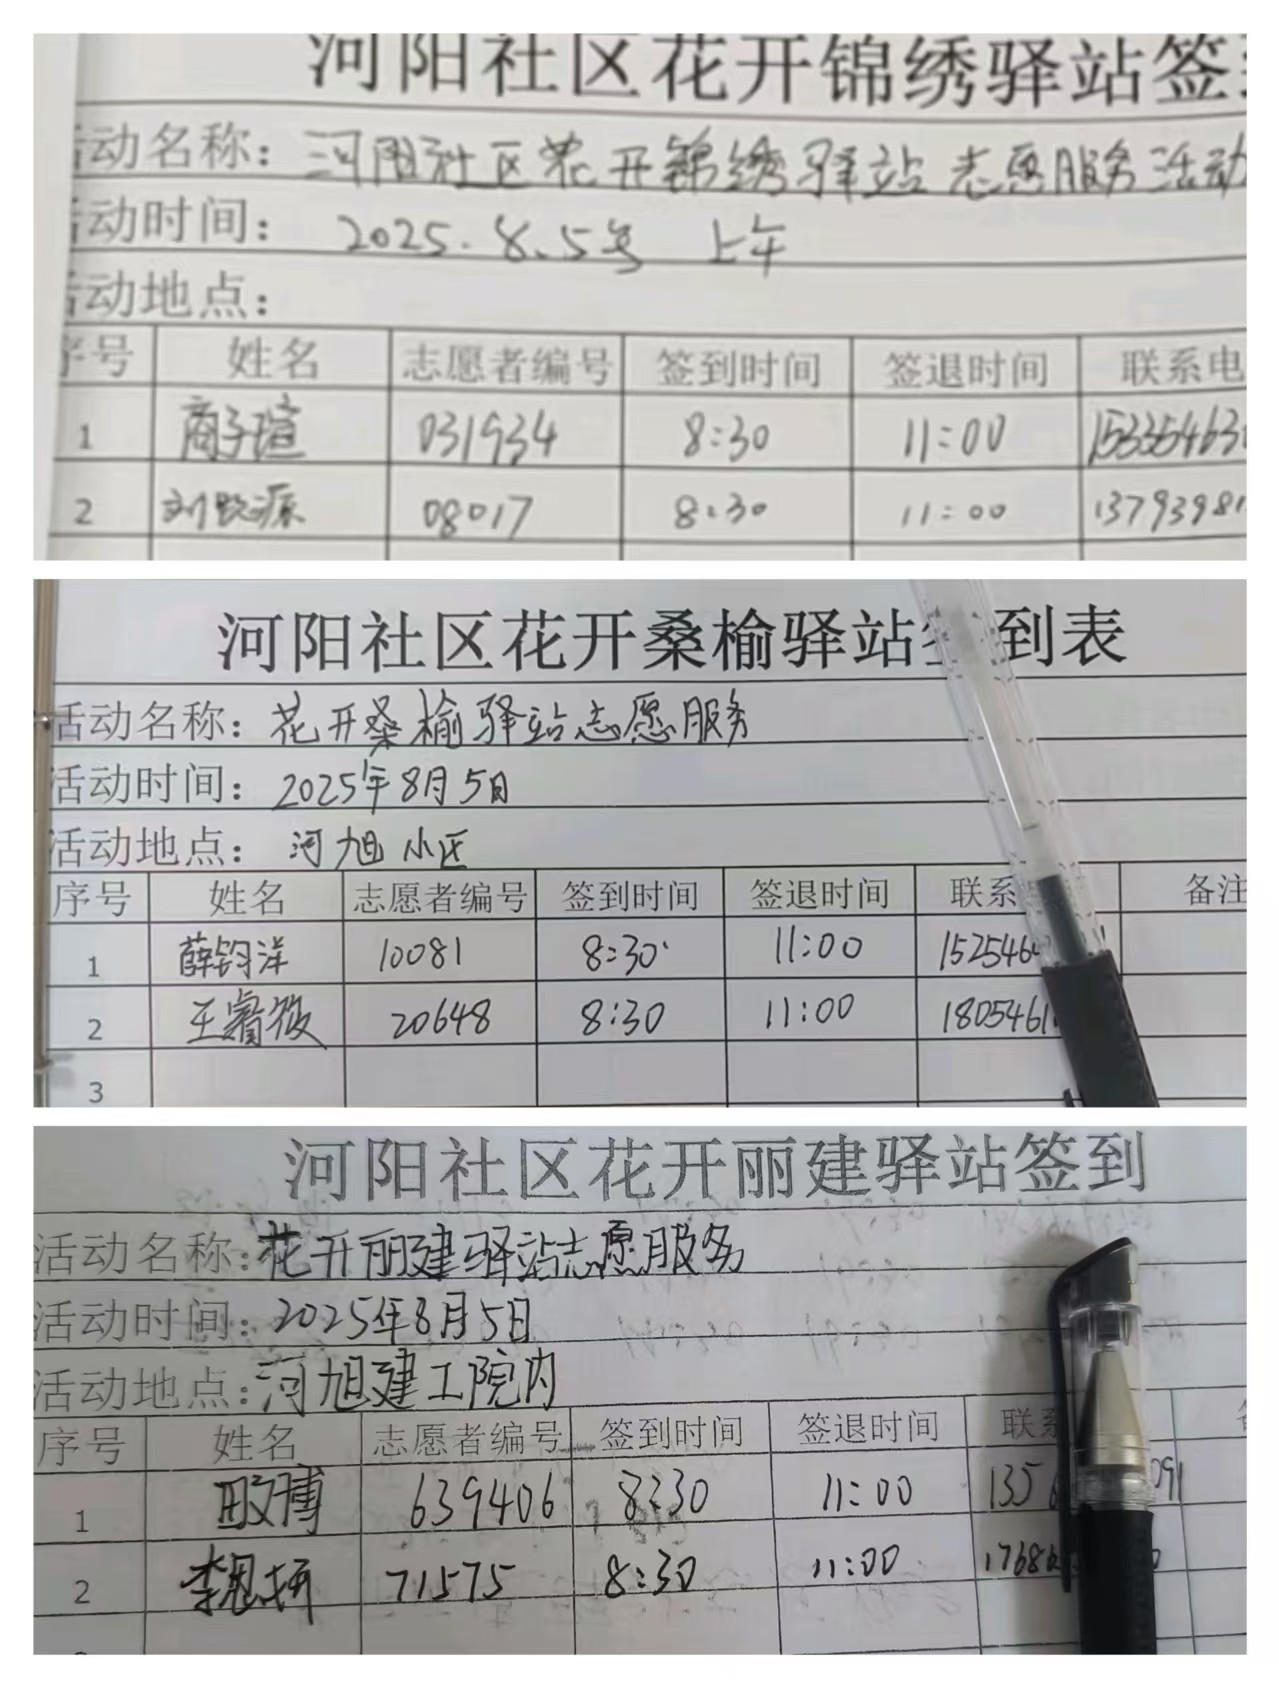 河阳社区花开锦绣驿站签
活动名称：河阳社区花开锦绣驿站志愿服务活动
活动时间：2025.8.5号 上午
活动地点：
序号 姓名 志愿者编号 签到时间 签退时间 联系电
1 商子瑄 031934 8:30 11:00 15335463
2 刘 源 08017 8:30 11:00 13793981
河阳社区花开桑榆驿站签到表
活动名称：花开桑榆驿站志愿服务
活动时间：2025年8月5日
活动地点：河旭小区
序号 姓名 志愿者编号 签到时间 签退时间 联系 备注
1 薛钧洋 10081 8:30 11:00 1525464
2 王睿筱 20648 8:30 11:00 1805461
3
河阳社区花开丽建驿站签到
活动名称：花开丽建驿站志愿服务
活动时间：2025年8月5日
活动地点：河旭建工院内
序号 姓名 志愿者编号 签到时间 签退时间 联系
1 博 639406 8:30 11:00 135 091
2 李恩妍 71575 8:30 11:00 1768